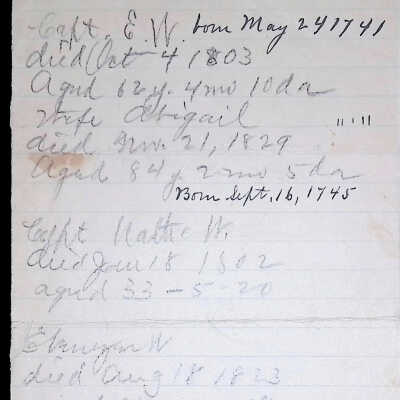 Capt. E. W. born May 24 1741
died Oct 4 1803
Aged 62 y. 4 mo 10 da
Wife Abigail " "
died Nov. 21, 1829
Aged 84 y 2 mo 5 da
Born Sept. 16, 1745
Capt W.
died Jan 18 1802
aged 33 - 5 - 20
Ebenezer W
died Aug 18 1823